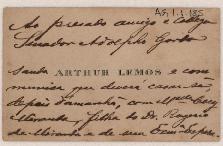 AG.1.1.185
Ao presado amigo e collega
Senador Adolpho Gordo
sauda ARTHUR LEMOS e com-
munica que deverá casar-se,
depois d'amanhã, com Mlle
Miranda, filha do Dr. Rogerio
de Miranda e de sua Exma.